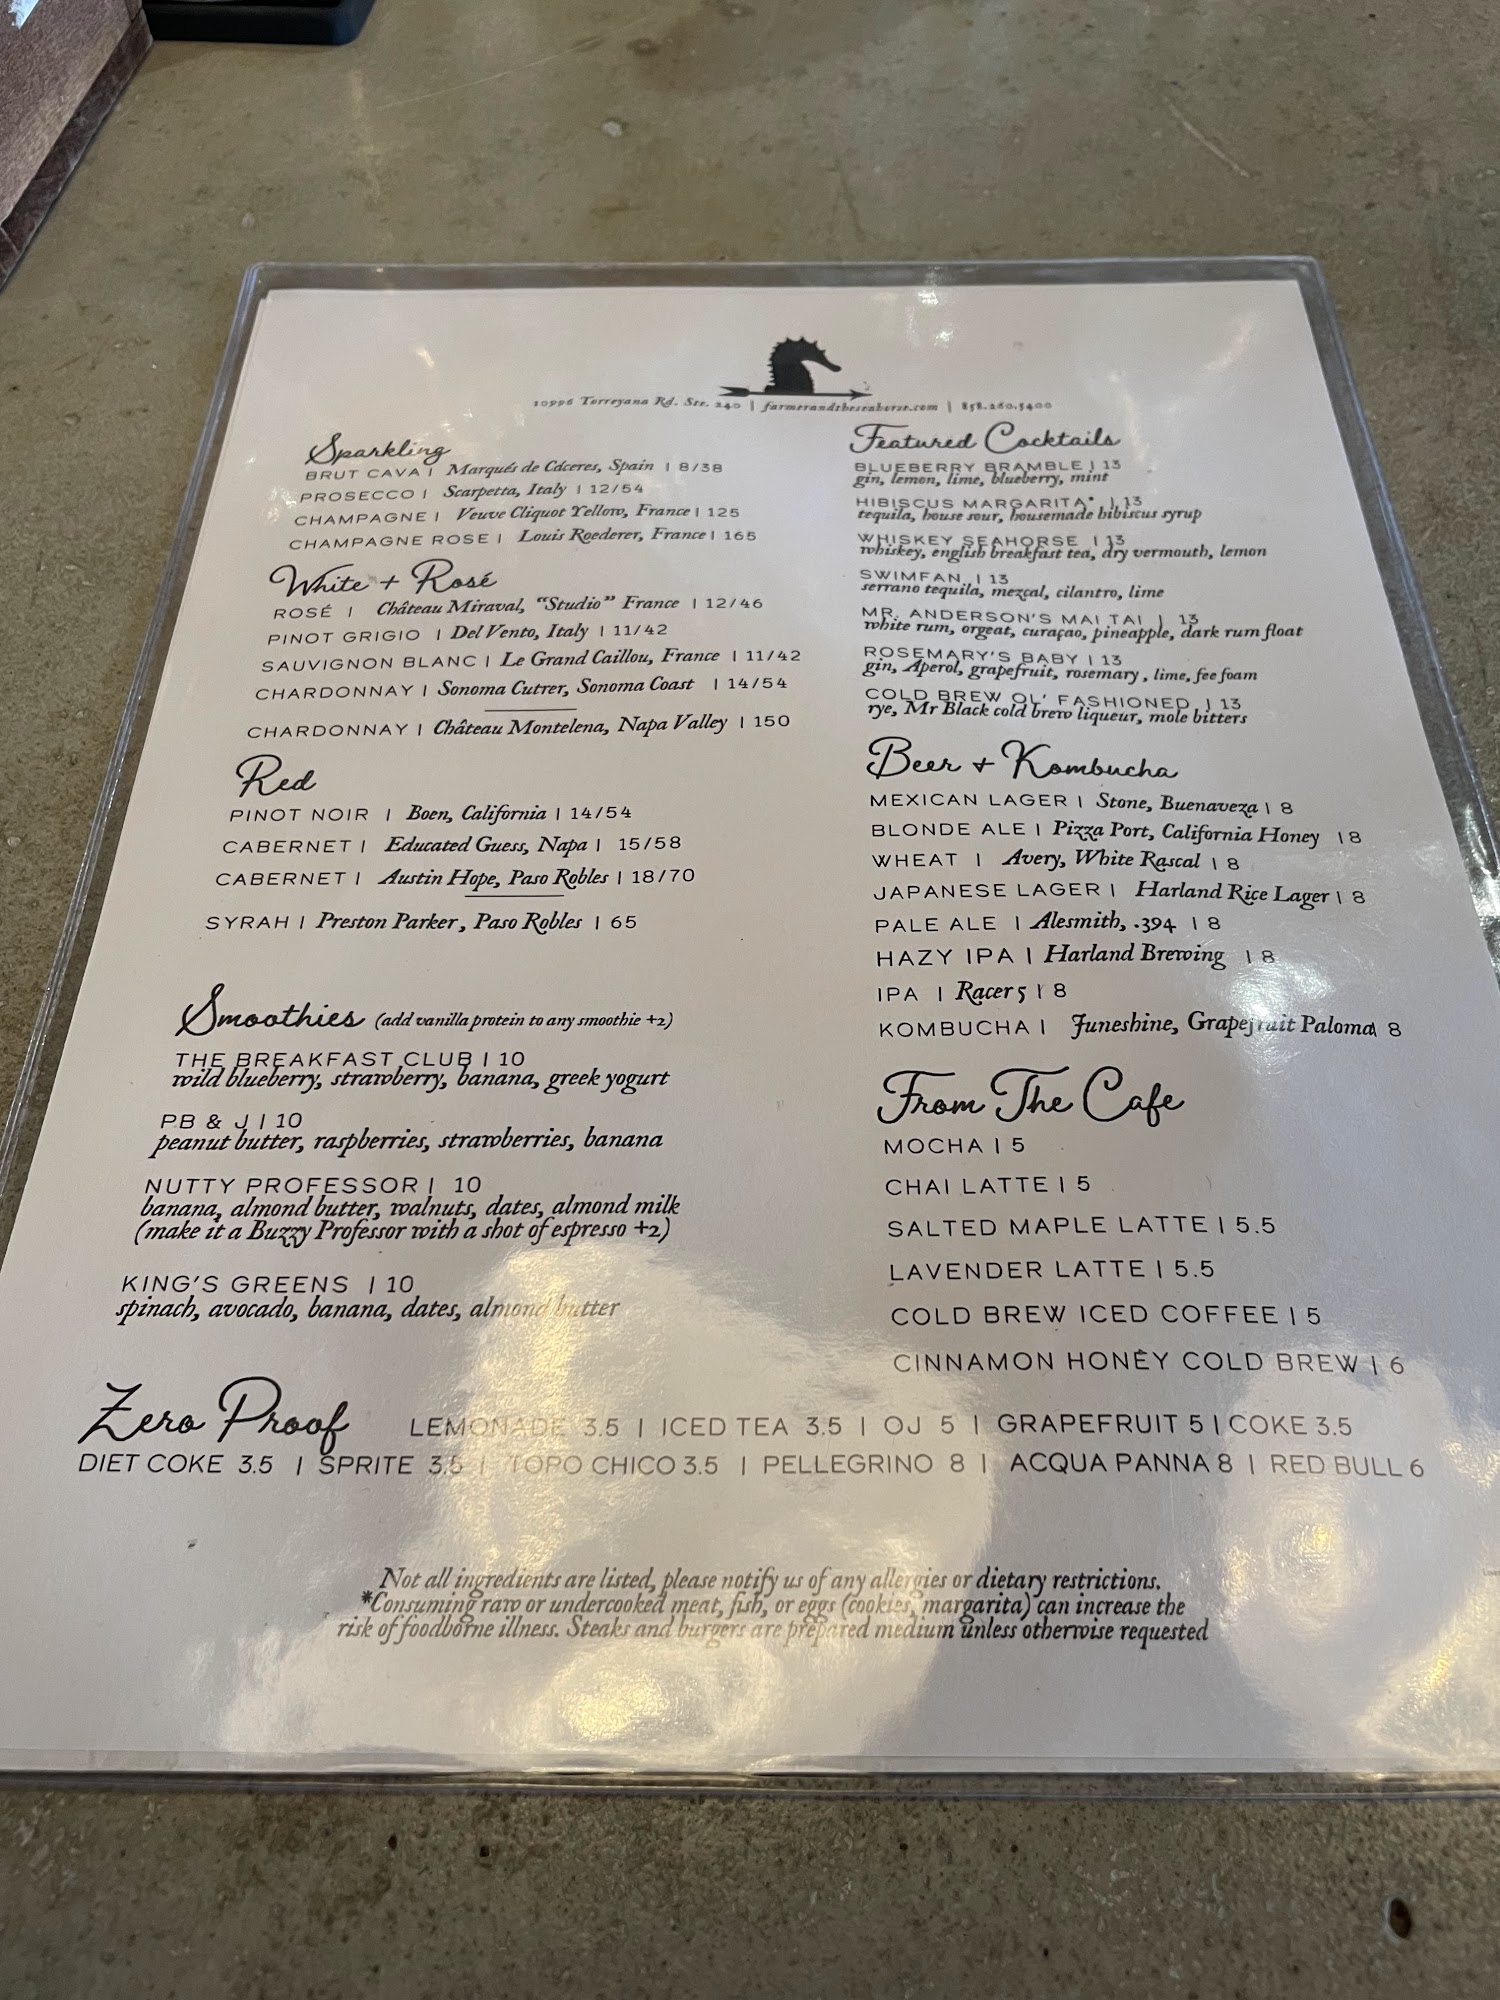 10996 Torreyana Rd. Ste. 240 | farmerandtheseahorse.com | 858.260.5400
Sparkling
BRUT CAVA | Marqués de Cáceres, Spain | 8/38
PROSECCO | Scarpetta, Italy | 12/54
CHAMPAGNE | Veuve Cliquot Yellow, France | 125
CHAMPAGNE ROSE | Louis Roederer, France | 165
White + Rosé
ROSÉ | Château Miraval, "Studio" France | 12/46
PINOT GRIGIO | Del Vento, Italy | 11/42
SAUVIGNON BLANC | Le Grand Caillou, France | 11/42
CHARDONNAY | Sonoma Cutrer, Sonoma Coast | 14/54
CHARDONNAY | Château Montelena, Napa Valley | 150
Red
PINOT NOIR | Boen, California | 14/54
CABERNET | Educated Guess, Napa | 15/58
CABERNET | Austin Hope, Paso Robles | 18/70
SYRAH | Preston Parker, Paso Robles | 65
Smoothies (add vanilla protein to any smoothie +2)
THE BREAKFAST CLUB | 10
wild blueberry, strawberry, banana, greek yogurt
PB & J | 10
peanut butter, raspberries, strawberries, banana
NUTTY PROFESSOR | 10
banana, almond butter, walnuts, dates, almond milk
(make it a Buzzy Professor with a shot of espresso +2)
KING'S GREENS | 10
spinach, avocado, banana, dates, almond butter
Featured Cocktails
BLUEBERRY BRAMBLE | 13
gin, lemon, lime, blueberry, mint
HIBISCUS MARGARITA* | 13
tequila, house sour, housemade hibiscus syrup
WHISKEY SEAHORSE | 13
whiskey, english breakfast tea, dry vermouth, lemon
SWIMFAN | 13
serrano tequila, mezcal, cilantro, lime
MR. ANDERSON'S MAI TAI | 13
white rum, orgeat, curaçao, pineapple, dark rum float
ROSEMARY'S BABY | 13
gin, Aperol, grapefruit, rosemary, lime, fee foam
COLD BREW OL' FASHIONED | 13
rye, Mr Black cold brew liqueur, mole bitters
Beer + Kombucha
MEXICAN LAGER | Stone, Buenaveza | 8
BLONDE ALE | Pizza Port, California Honey | 8
WHEAT | Avery, White Rascal | 8
JAPANESE LAGER | Harland Rice Lager | 8
PALE ALE | Alesmith, .394 | 8
HAZY IPA | Harland Brewing | 8
IPA | Racer 5 | 8
KOMBUCHA | Juneshine, Grapefruit Paloma| 8
From The Cafe
MOCHA | 5
CHAI LATTE | 5
SALTED MAPLE LATTE | 5.5
LAVENDER LATTE | 5.5
COLD BREW ICED COFFEE | 5
CINNAMON HONEY COLD BREW | 6
Zero Proof LEMONADE 3.5 | ICED TEA 3.5 | OJ 5 | GRAPEFRUIT 5 | COKE 3.5
DIET COKE 3.5 | SPRITE 3.5 | TOPO CHICO 3.5 | PELLEGRINO 8 | ACQUA PANNA 8 | RED BULL 6
Not all ingredients are listed, please notify us of any allergies or dietary restrictions.
*Consuming raw or undercooked meat, fish, or eggs (cookies, margarita) can increase the
risk of foodborne illness. Steaks and burgers are prepared medium unless otherwise requested